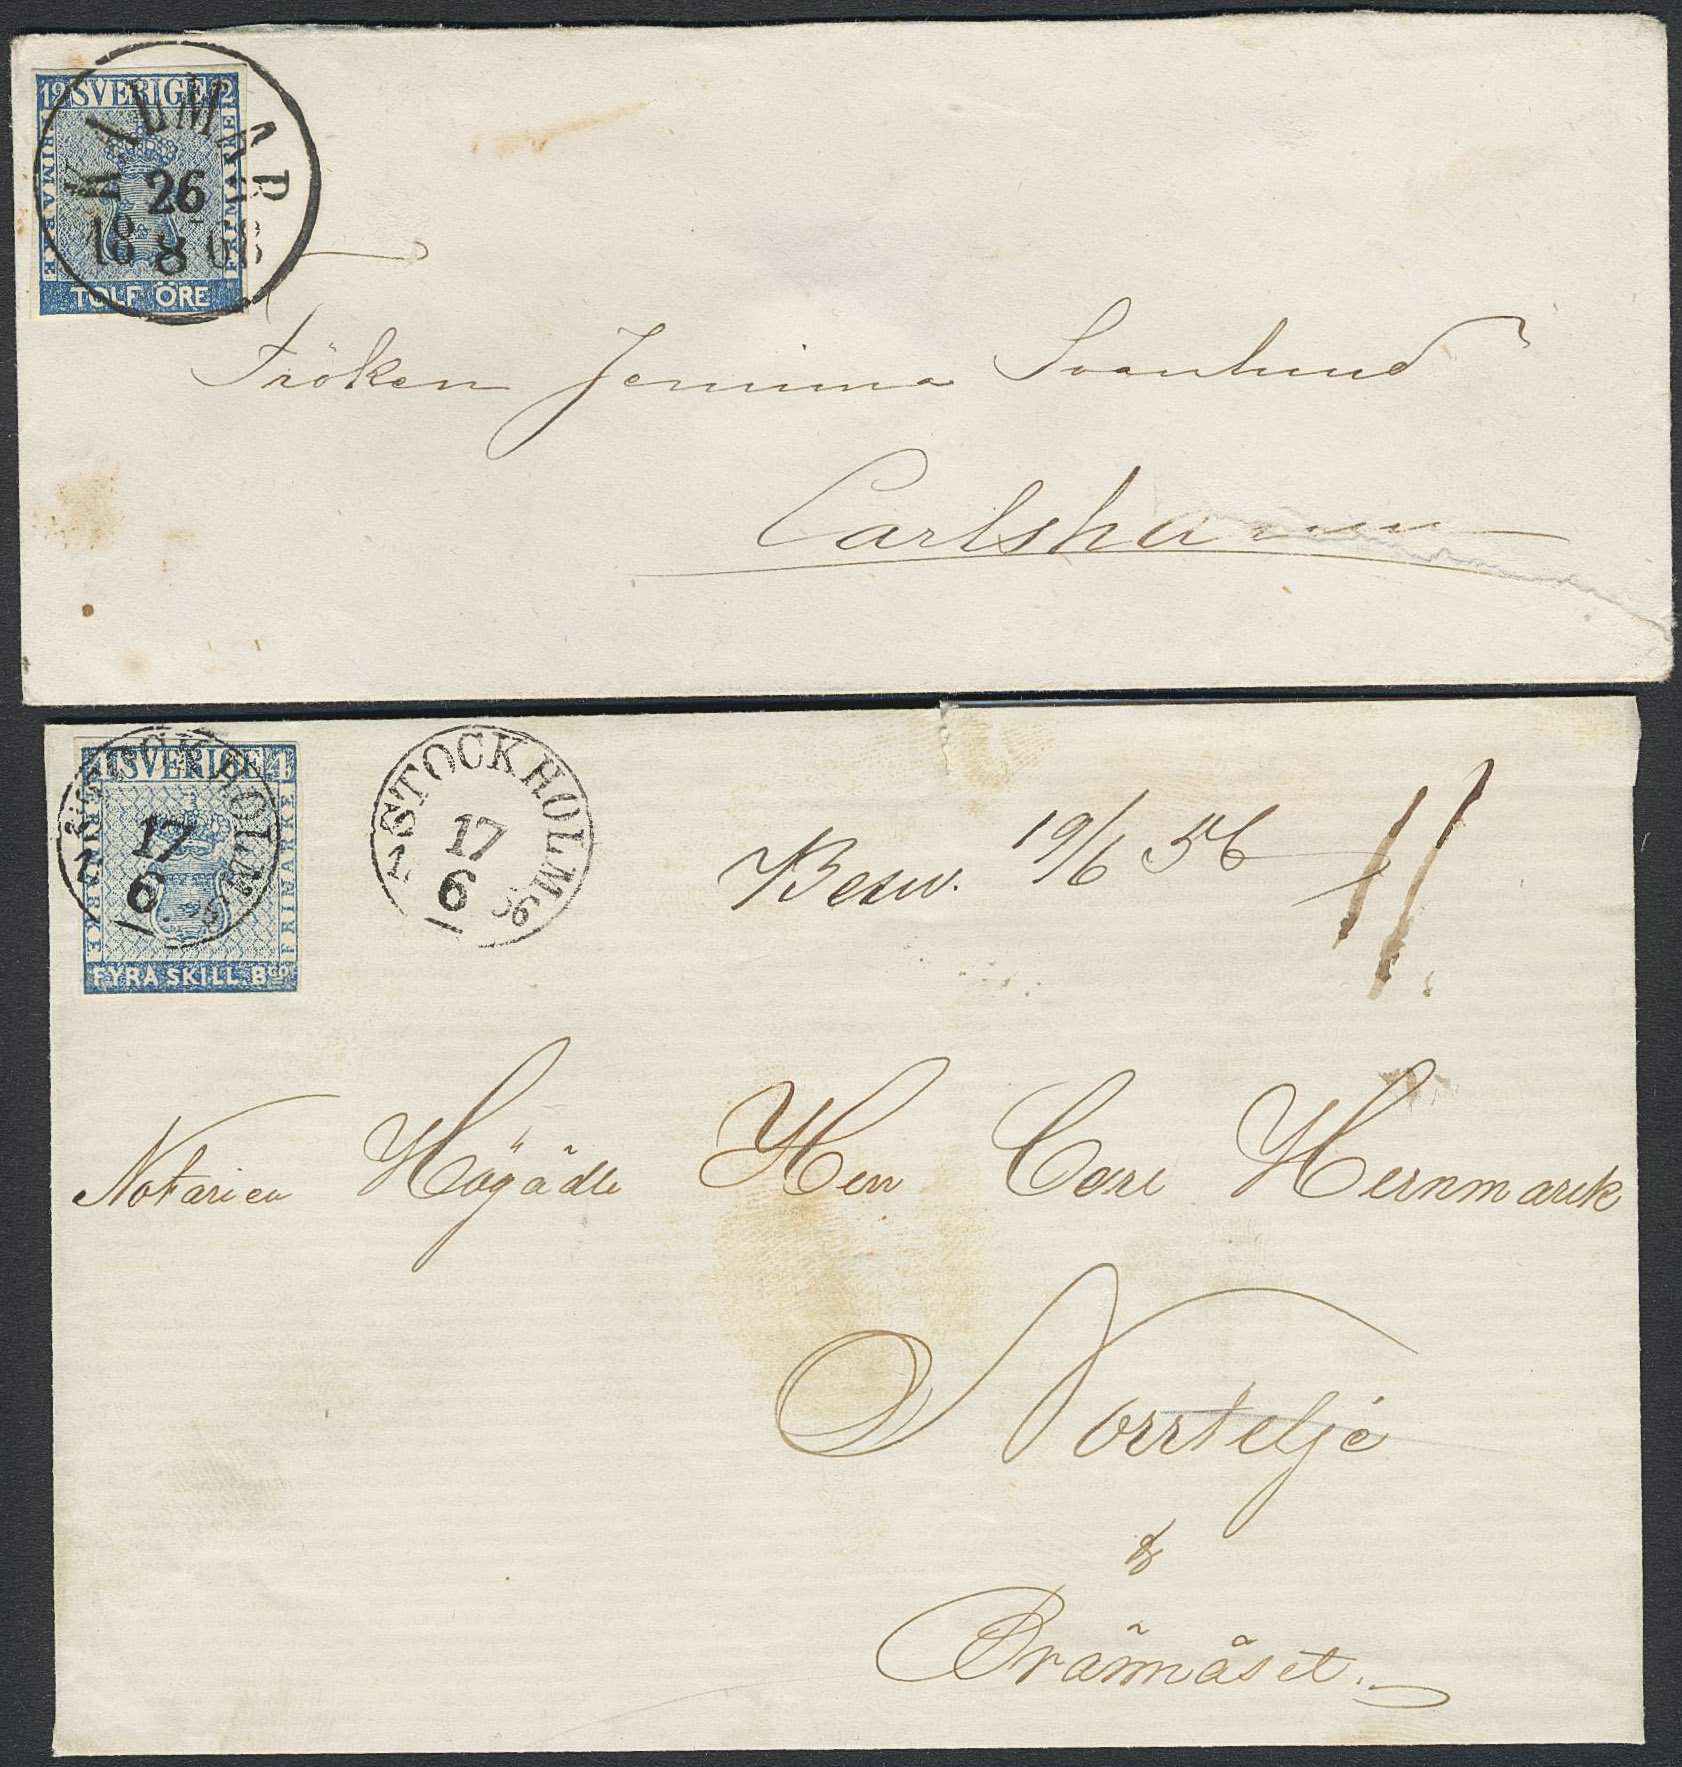 12 SVERIGE 12
FRIMARKE
FRIMARKE
TOLF ÖRE
KALMAR
26
18 8 66
Fröken Jemima Svanlund
Carlshamn
4 SVERIGE 4
FRIMARKE
FRIMARKE
FYRA SKILL. Bco.
STOCKHOLM
17
6
STOCKHOLM
17
6
Besv. 19/6 56
Notarien Högädle Herr Carl Hernmarck
Norrtelje
&
Brännäset.